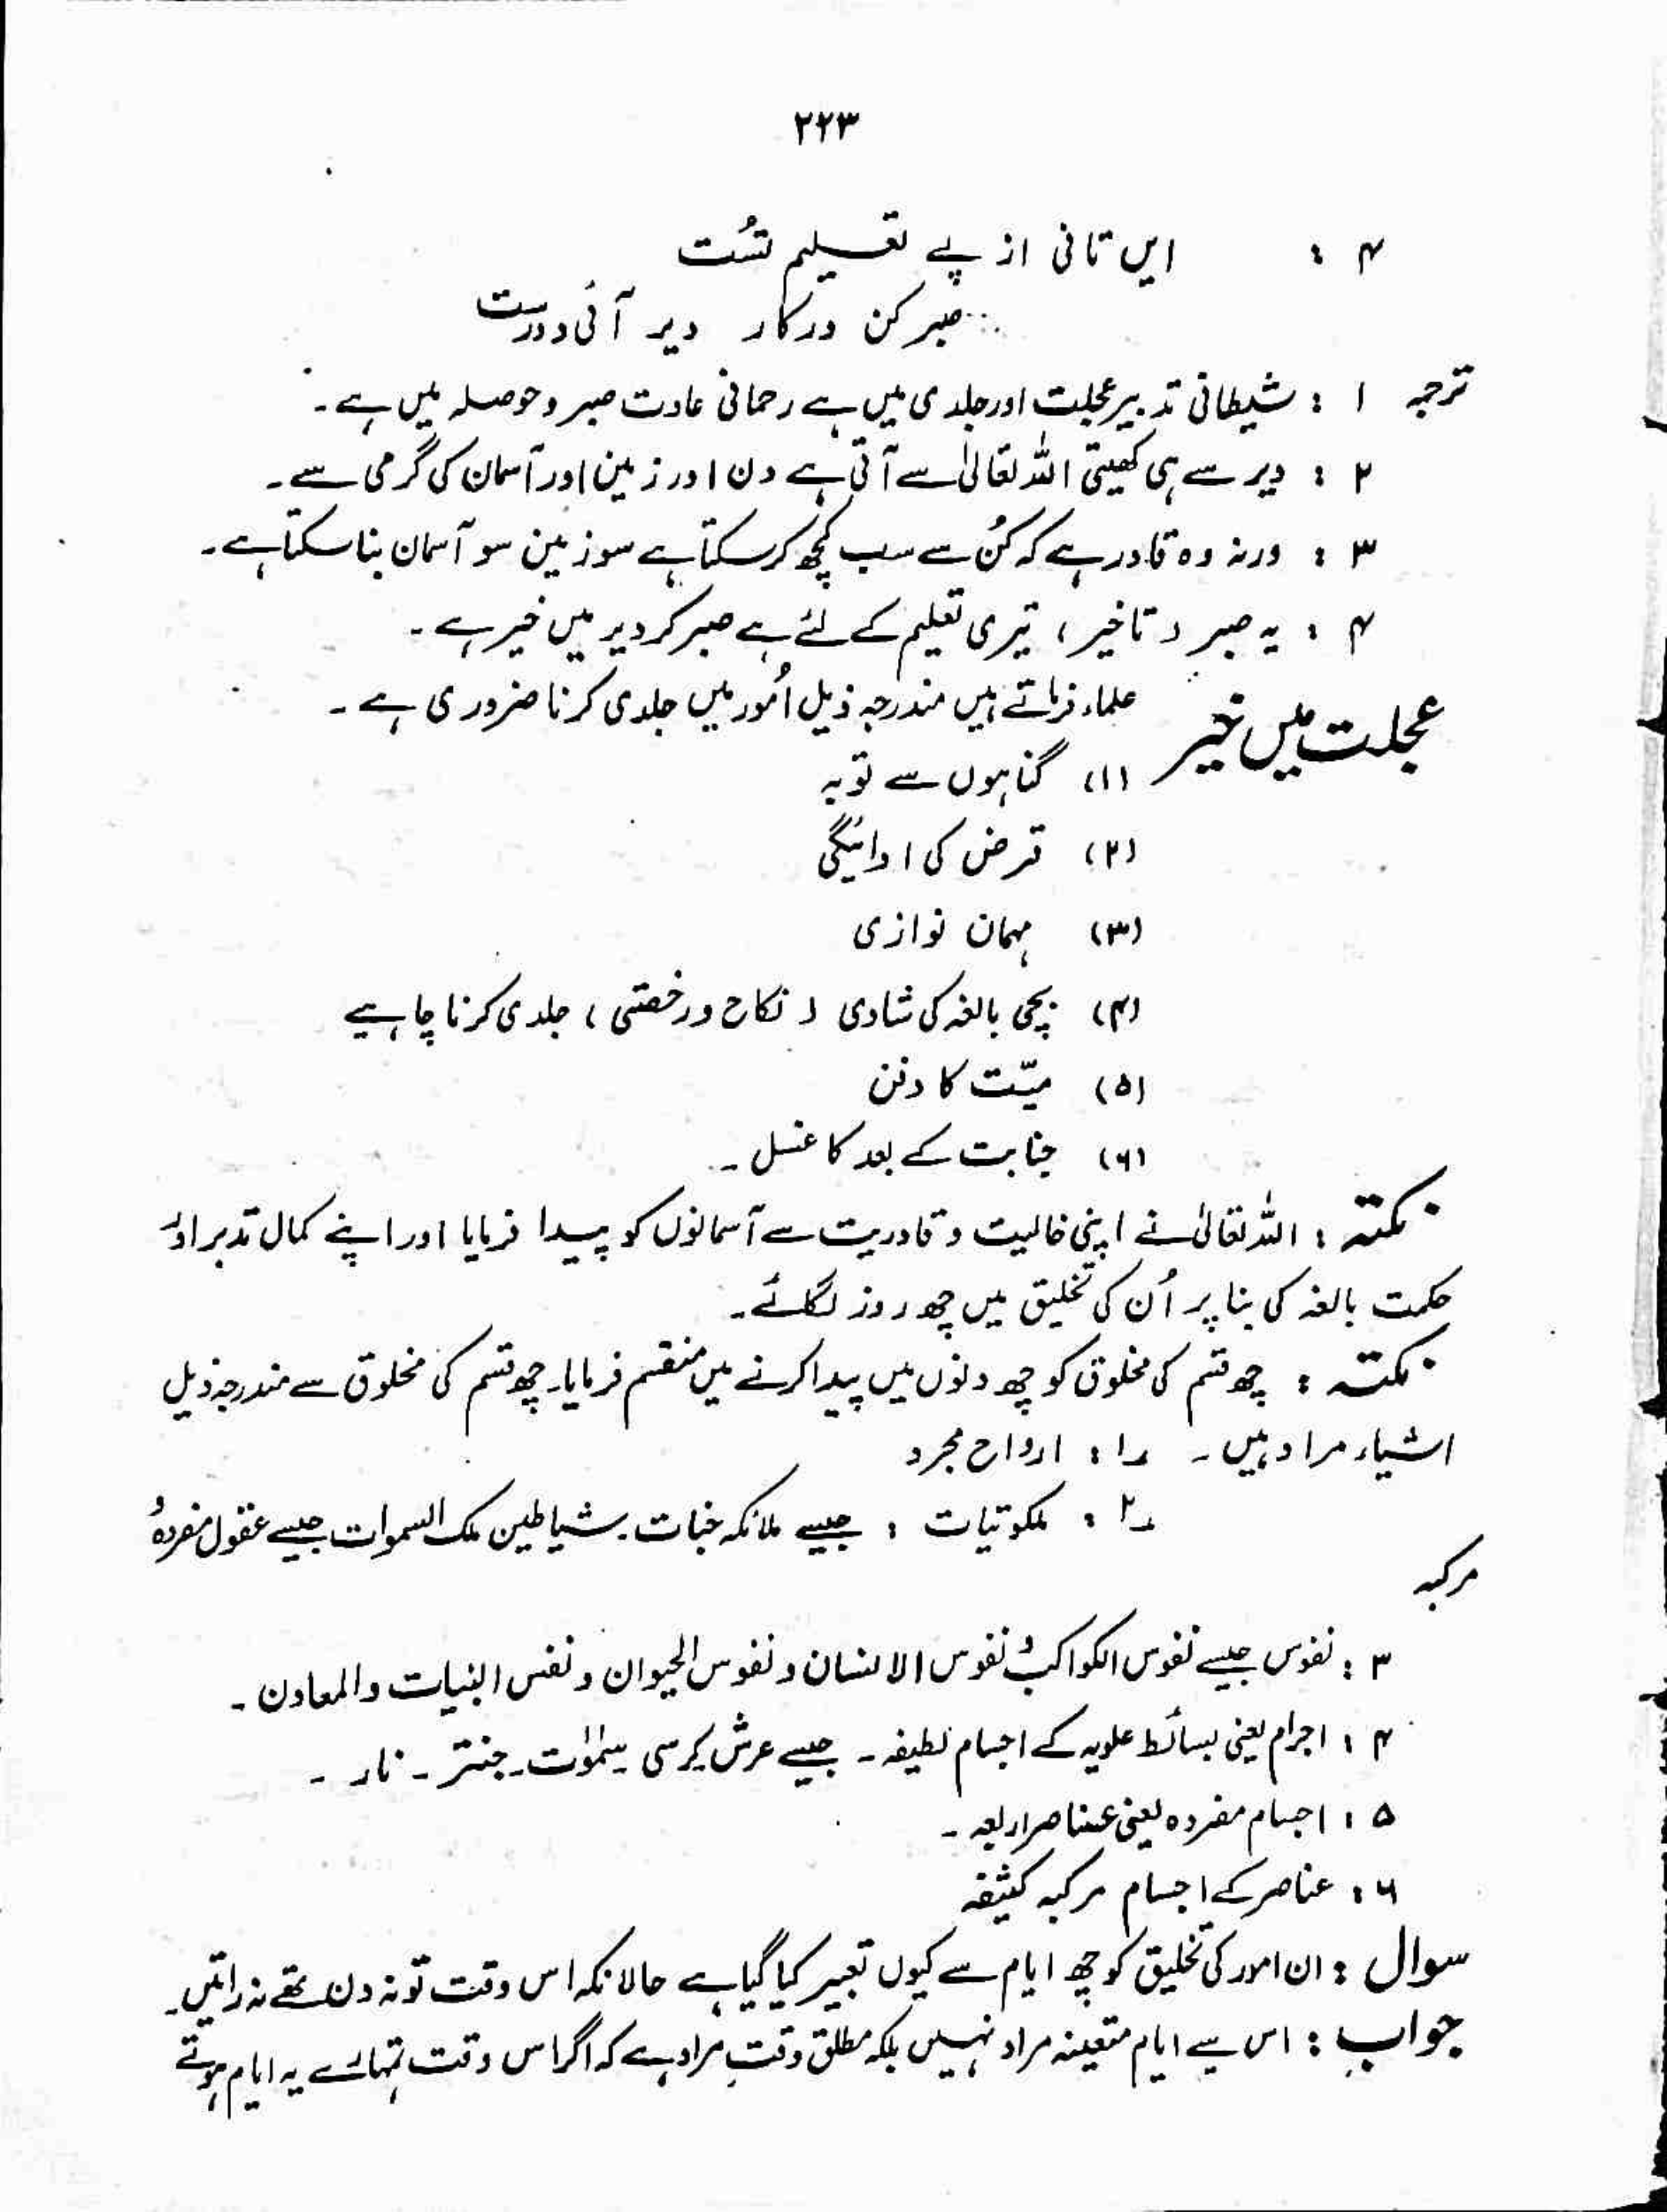 ۲۲۳
۴ : ایں تانی از پے تعلیم تست
صبر کن درکار دیر آئی و درست
ترجمہ ۱ : شیطانی تدبیر عجلت اور جلدی میں ہے رحمانی عادت صبر و حوصلہ میں ہے۔
۲ : دیر سے ہی کھیتی اللہ تعالیٰ سے آتی ہے دن اور زمین اور آسمان کی گرمی سے۔
۳ : ورنہ وہ قادر ہے کہ کُن سے سب کچھ کر سکتا ہے سو زمین سو آسمان بنا سکتا ہے۔
۴ : یہ صبر (تاخیر) تیری تعلیم کے لئے ہے صبر کر دیر میں خیر ہے۔
عجلت میں خیر علماء فرماتے ہیں مندرجہ ذیل اُمور میں جلدی کرنا ضروری ہے۔
(۱) گناہوں سے توبہ
(۲) قرض کی ادائیگی
(۳) مہمان نوازی
(۴) بچی بالغہ کی شادی (نکاح و رخصتی) جلدی کرنا چاہیے
(۵) میّت کا دفن
(۶) جنابت کے بعد کا غسل۔
نکتہ : اللہ تعالیٰ نے اپنی خالیت و قادریت سے آسمانوں کو پیدا فرمایا اور اپنے کمال تدبر اور
حکمت بالغہ کی بنا پر اُن کی تخلیق میں چھ روز لگائے۔
نکتہ : چھ قسم کی مخلوق کو چھ دنوں میں پیدا کرنے میں منقسم فرمایا۔ چھ قسم کی مخلوق سے مندرجہ ذیل
اشیاء مراد ہیں۔ ۱ : ارواح مجرد
۲ : ملکوتیات : جیسے ملائکہ جنات۔ شیاطین ملک السموات جیسے عقول مفردہ و
مرکبہ
۳ : نفوس جیسے نفوس الکواکب و نفوس الانسان و نفوس الحیوان و نفس النبات والمعادن۔
۴ : اجرام یعنی بسائط علویہ کے اجسام لطیفہ۔ جیسے عرش۔ کرسی۔ سمٰوٰت۔ جنتر۔ نار۔
۵ : اجسام مفردہ یعنی عناصر اربعہ۔
۶ : عناصر کے اجسام مرکبہ کثیفہ
سوال : ان امور کی تخلیق کو چھ ایام سے کیوں تعبیر کیا گیا ہے حالانکہ اس وقت تو نہ دن تھے نہ راتیں۔
جواب : اس سے ایام متعینہ مراد نہیں بلکہ مطلق وقت مراد ہے کہ اگر اس وقت تمہارے یہ ایام ہوتے